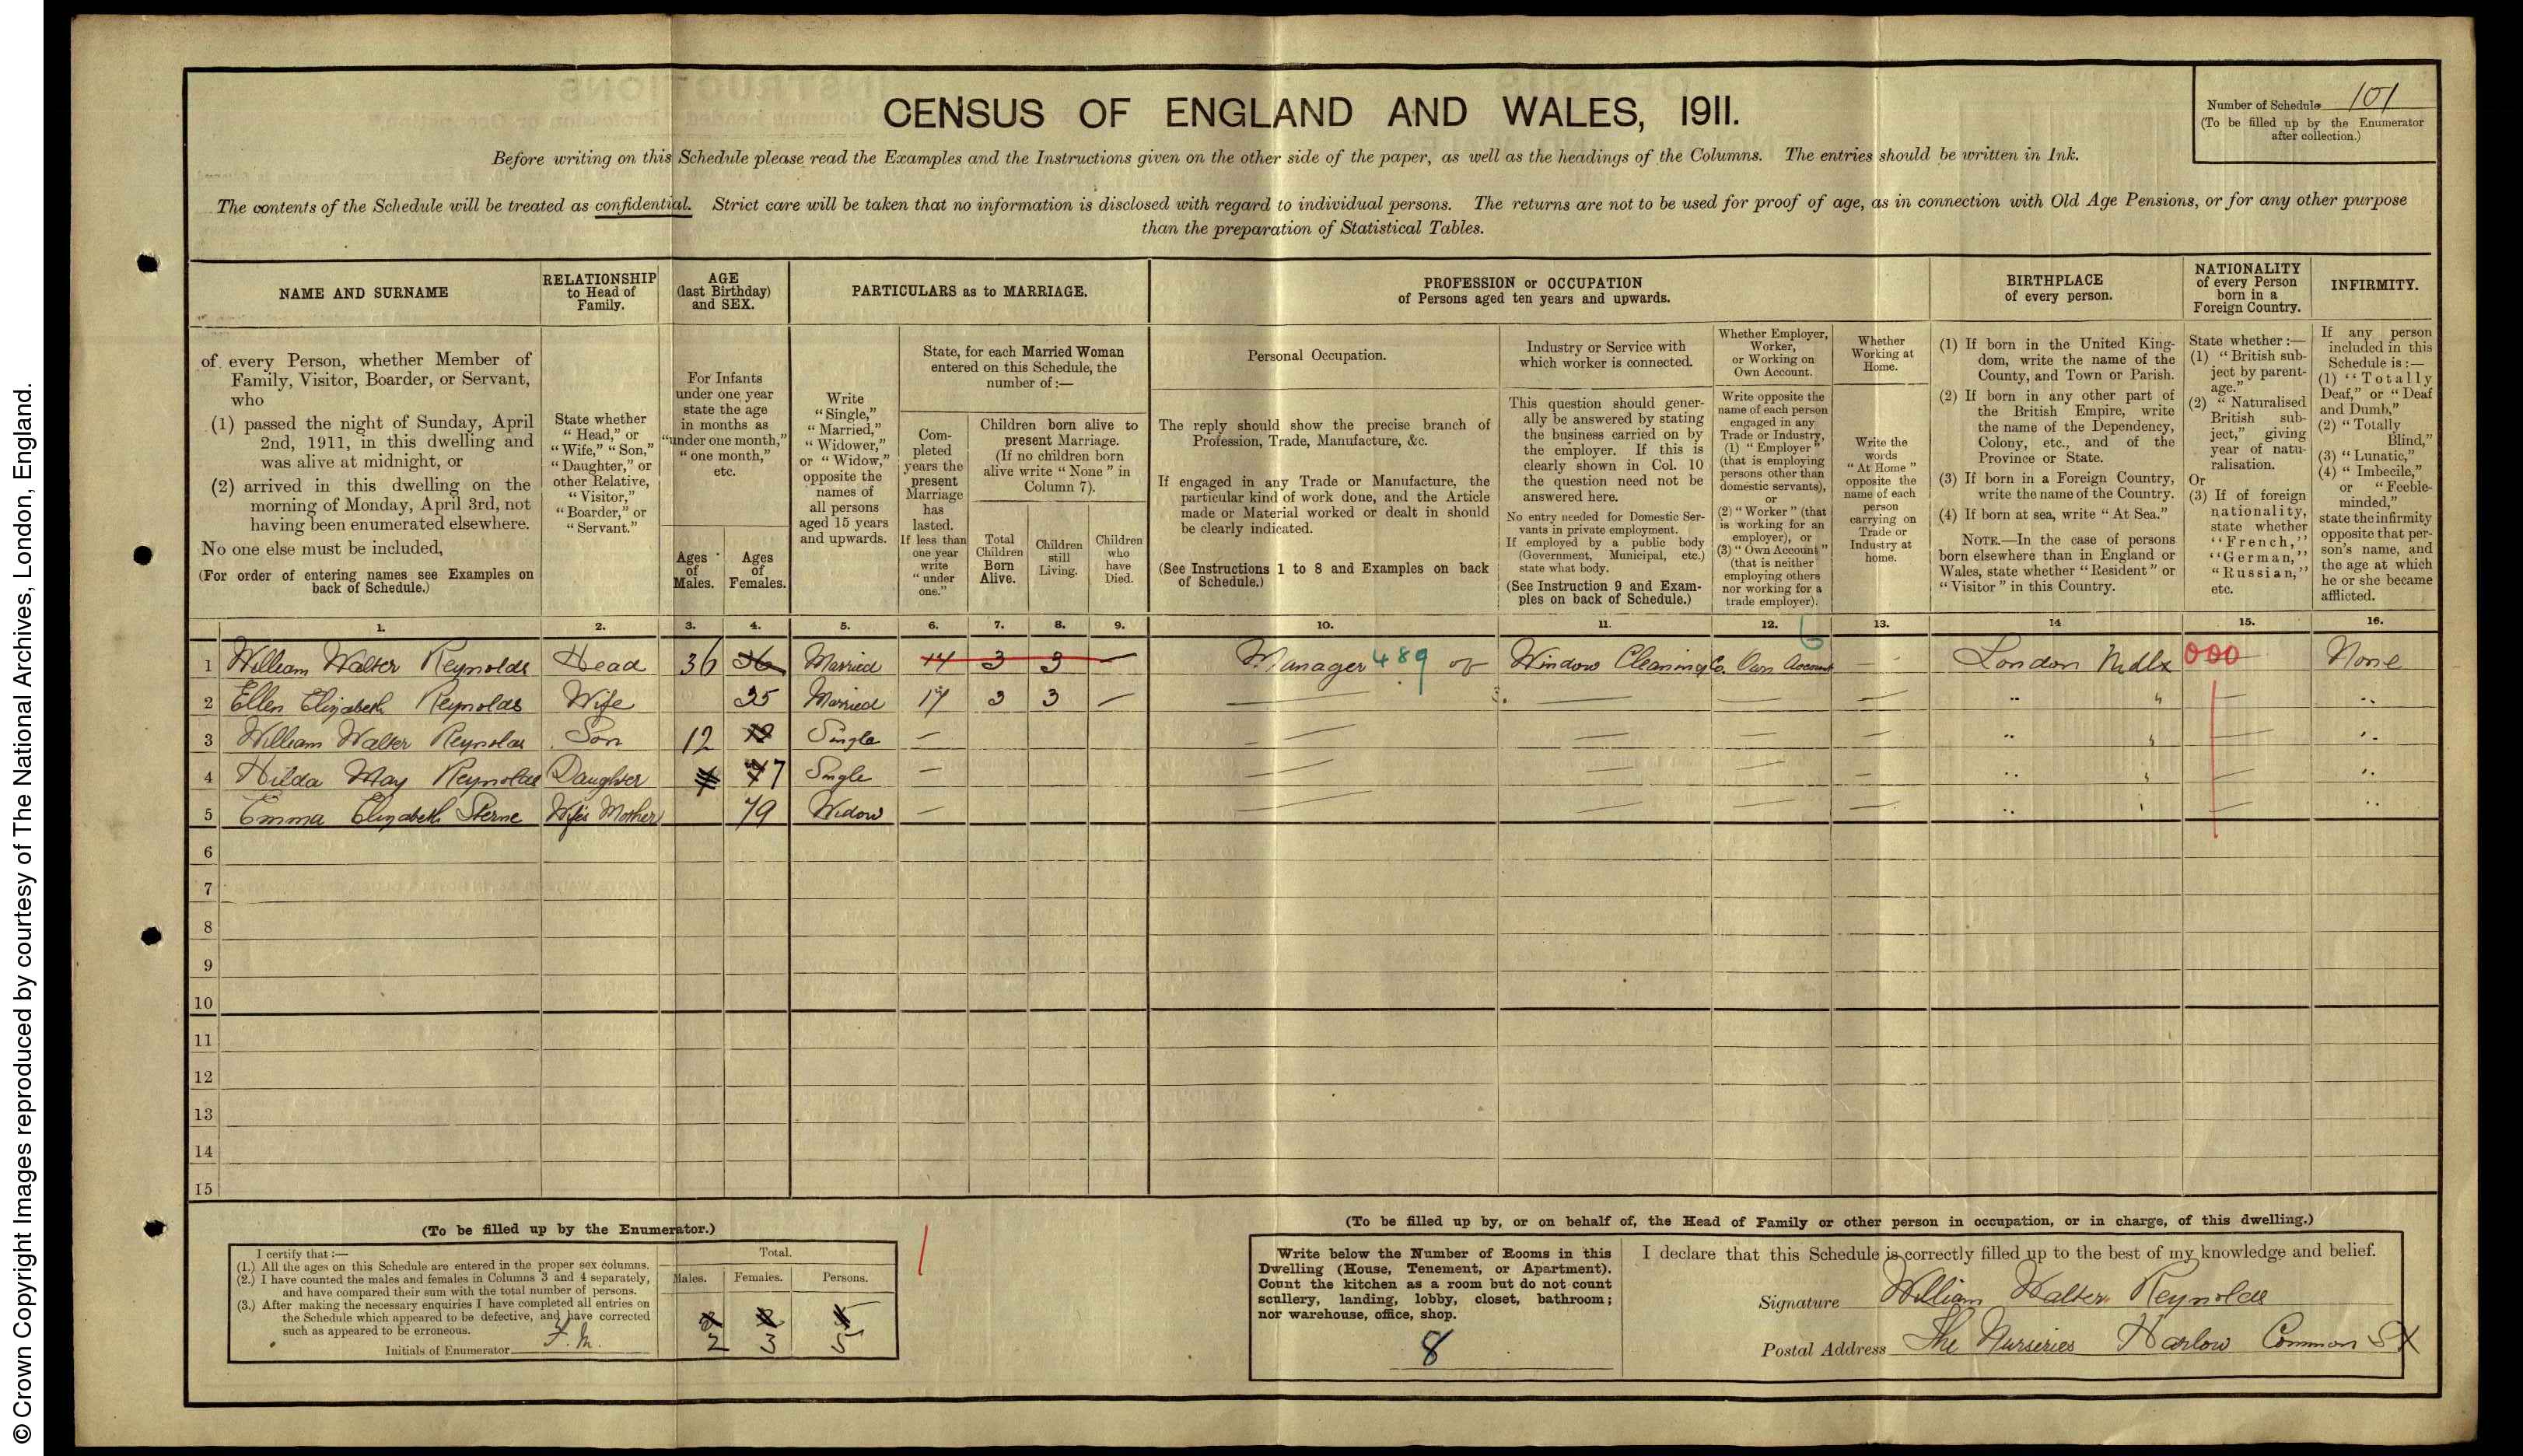 © Crown Copyright Images reproduced by courtesy of The National Archives, London, England.
CENSUS OF ENGLAND AND WALES, 1911.
Number of Schedule 101
(To be filled up by the Enumerator
after collection.)
Before writing on this Schedule please read the Examples and the Instructions given on the other side of the paper, as well as the headings of the Columns. The entries should be written in Ink.
The contents of the Schedule will be treated as confidential. Strict care will be taken that no information is disclosed with regard to individual persons. The returns are not to be used for proof of age, as in connection with Old Age Pensions, or for any other purpose
than the preparation of Statistical Tables.
NAME AND SURNAME
of every Person, whether Member of
Family, Visitor, Boarder, or Servant,
who
(1) passed the night of Sunday, April
2nd, 1911, in this dwelling and
was alive at midnight, or
(2) arrived in this dwelling on the
morning of Monday, April 3rd, not
having been enumerated elsewhere.
No one else must be included,
(For order of entering names see Examples on
back of Schedule.)
RELATIONSHIP
to Head of
Family.
State whether
"Head," or
"Wife," "Son,"
"Daughter," or
other Relative,
"Visitor,"
"Boarder," or
"Servant."
AGE
(last Birthday)
and SEX.
For Infants
under one year
state the age
in months as
"under one month,"
"one month,"
etc.
Ages
of
Males.
Ages
of
Females.
PARTICULARS as to MARRIAGE.
Write
"Single,"
"Married,"
"Widower,"
or "Widow,"
opposite the
names of
all persons
aged 15 years
and upwards.
State, for each Married Woman
entered on this Schedule, the
number of:—
Com-
pleted
years the
present
Marriage
has
lasted.
If less than
one year
write
"under
one."
Children born alive to
present Marriage.
(If no children born
alive write "None" in
Column 7).
Total
Children
Born
Alive.
Children
still
Living.
Children
who
have
Died.
PROFESSION or OCCUPATION
of Persons aged ten years and upwards.
Personal Occupation.
The reply should show the precise branch of
Profession, Trade, Manufacture, &c.
If engaged in any Trade or Manufacture, the
particular kind of work done, and the Article
made or Material worked or dealt in should
be clearly indicated.
(See Instructions 1 to 8 and Examples on back
of Schedule.)
Industry or Service with
which worker is connected.
This question should gener-
ally be answered by stating
the business carried on by
the employer. If this is
clearly shown in Col. 10
the question need not be
answered here.
No entry needed for Domestic Ser-
vants in private employment.
If employed by a public body
(Government, Municipal, etc.)
state what body.
(See Instruction 9 and Exam-
ples on back of Schedule.)
Whether Employer,
Worker,
or Working on
Own Account.
Write opposite the
name of each person
engaged in any
Trade or Industry,
(1) "Employer"
(that is employing
persons other than
domestic servants),
or
(2) "Worker" (that
is working for an
employer), or
(3) "Own Account"
(that is neither
employing others
nor working for a
trade employer).
Whether
Working at
Home.
Write the
words
"At Home"
opposite the
name of each
person
carrying on
Trade or
Industry at
home.
BIRTHPLACE
of every person.
(1) If born in the United King-
dom, write the name of the
County, and Town or Parish.
(2) If born in any other part of
the British Empire, write
the name of the Dependency,
Colony, etc., and of the
Province or State.
(3) If born in a Foreign Country,
write the name of the Country.
(4) If born at sea, write "At Sea."
NOTE.—In the case of persons
born elsewhere than in England or
Wales, state whether "Resident" or
"Visitor" in this Country.
NATIONALITY
of every Person
born in a
Foreign Country.
State whether:—
(1) "British sub-
ject by parent-
age."
(2) "Naturalised
British sub-
ject," giving
year of natu-
ralisation.
Or
(3) If of foreign
nationality,
state whether
"French,"
"German,"
"Russian,"
etc.
INFIRMITY.
If any person
included in this
Schedule is:—
(1) "Totally
Deaf," or "Deaf
and Dumb,"
(2) "Totally
Blind,"
(3) "Lunatic,"
(4) "Imbecile,"
or "Feeble-
minded,"
state the infirmity
opposite that per-
son's name, and
the age at which
he or she became
afflicted.
1. 2. 3. 4. 5. 6. 7. 8. 9. 10. 11. 12. 13. 14 15. 16.
1 William Walter Reynolds Head 36 36 Married 14 3 3 — Manager 489 of Window Cleaning Co. Own Account — London Mdlx 000 None
2 Ellen Elizabeth Reynolds Wife 35 Married 3 3 —
3 William Walter Reynolds Son 12 Single —
4 Hilda May Reynolds Daughter 7 Single —
5 Emma Elizabeth Sterne Wife's Mother 79 Widow —
6
7
8
9
10
11
12
13
14
15
(To be filled up by the Enumerator.)
I certify that:—
(1.) All the ages on this Schedule are entered in the proper sex columns.
(2.) I have counted the males and females in Columns 3 and 4 separately,
and have compared their sum with the total number of persons.
(3.) After making the necessary enquiries I have completed all entries on
the Schedule which appeared to be defective, and have corrected
such as appeared to be erroneous.
Initials of Enumerator
Total.
Males. Females. Persons.
2 3 5
(To be filled up by, or on behalf of, the Head of Family or other person in occupation, or in charge, of this dwelling.)
Write below the Number of Rooms in this
Dwelling (House, Tenement, or Apartment).
Count the kitchen as a room but do not count
scullery, landing, lobby, closet, bathroom;
nor warehouse, office, shop.
8
I declare that this Schedule is correctly filled up to the best of my knowledge and belief.
Signature William Walter Reynolds
Postal Address The Nurseries Harlow Common